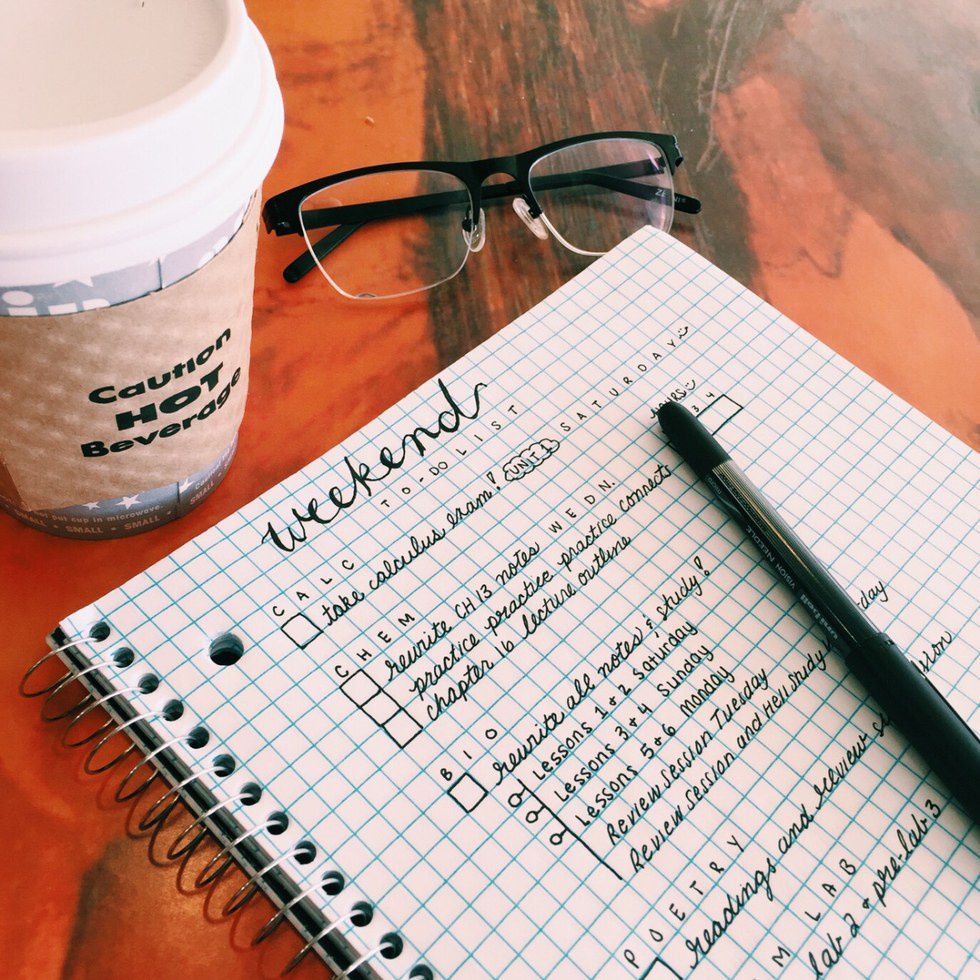 Caution
HOT
Beverage
put cup in microwave.
SMALL • SMALL • SMALL
weekend
TO-DO LIST
CALC
take calculus exam! UNIT 1 SATURDAY
CHEM
rewrite CH 13 notes WEDN.
practice practice practice connects
chapter 16 lecture outline
3 4
BIO
rewrite all notes & study!
Lessons 1 & 2 Saturday
Lessons 3 & 4 Sunday
Lessons 5 & 6 Monday
Review session Tuesday
Review session and
POETRY
readings and review
LAB
lab 2 & pre-lab 3
uni-ball
VISION NEEDLE